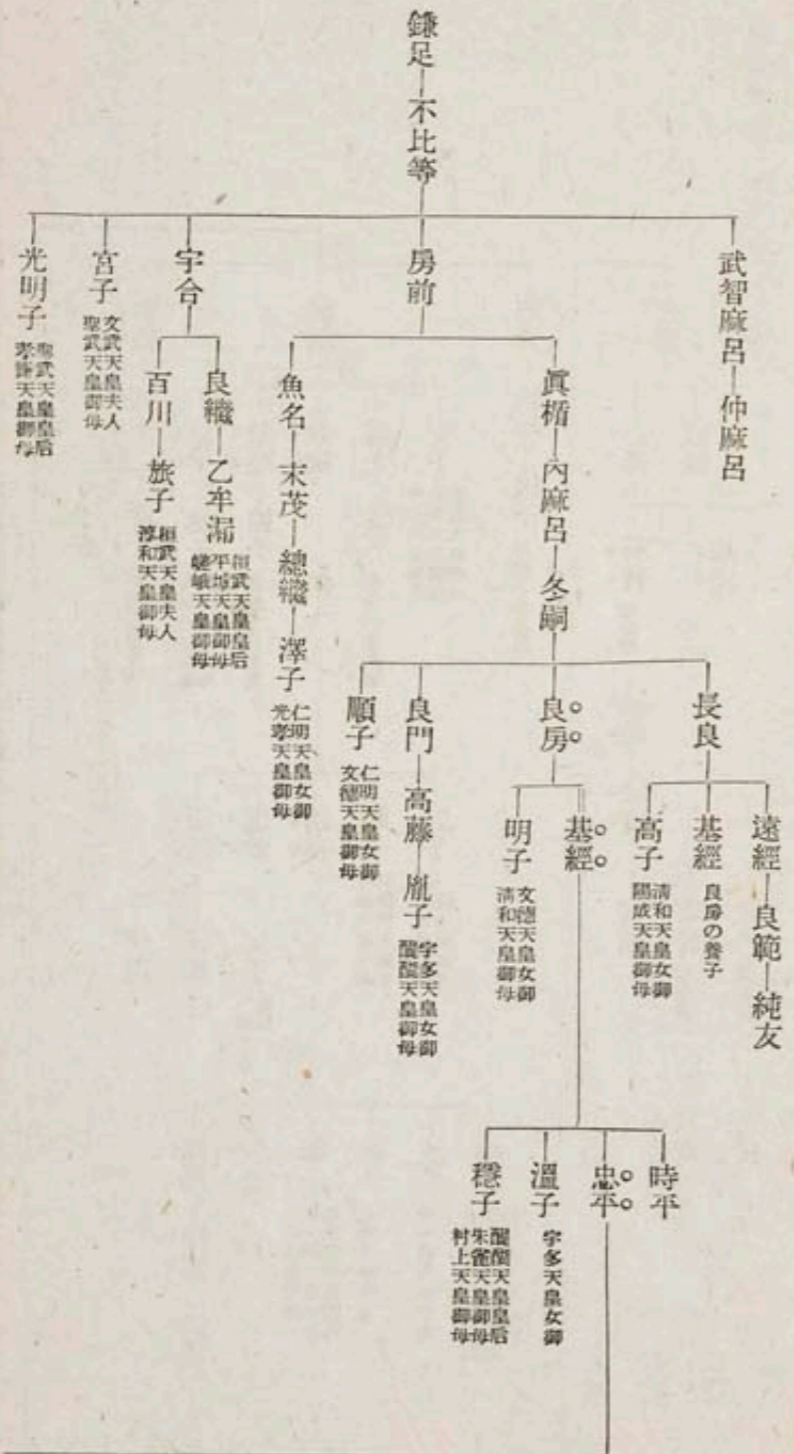 鎌足―不比等
武智麻呂―仲麻呂
房前
眞楯―內麻呂―冬嗣
長良
遠經―良範―純友
基經 良房の養子
高子 淸和天皇女御
陽成天皇御母
良房
基經
時平
忠平
溫子 宇多天皇女御
穩子 醍醐天皇皇后
朱雀天皇御母
村上天皇御母
明子 文德天皇女御
淸和天皇御母
良門―高藤―胤子 宇多天皇女御
醍醐天皇御母
順子 仁明天皇女御
文德天皇御母
魚名―末茂―總繼―澤子 仁明天皇女御
光孝天皇御母
宇合
良繼―乙牟漏 桓武天皇皇后
平城天皇御母
嵯峨天皇御母
百川―旅子 桓武天皇夫人
淳和天皇御母
宮子 文武天皇夫人
聖武天皇御母
光明子 聖武天皇皇后
孝謙天皇御母